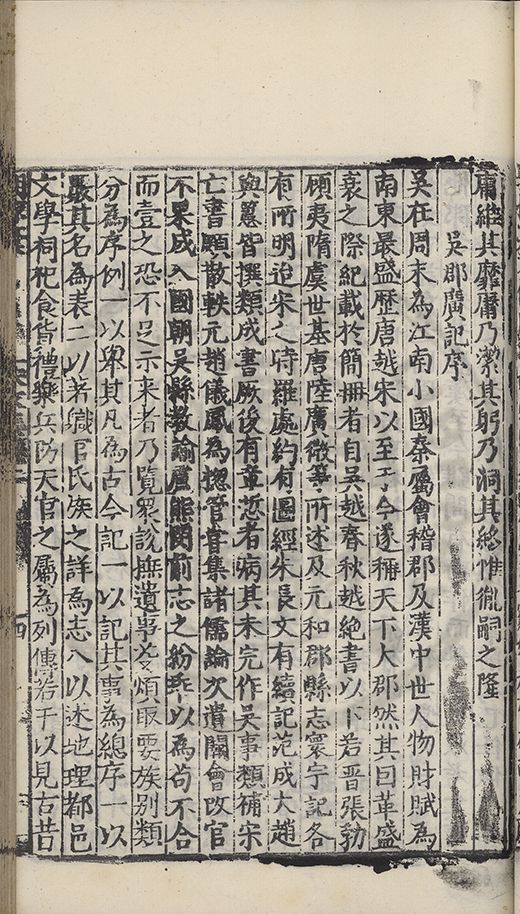 庸絕其靡庸乃潔其躬乃洞其絡惟胤嗣之隆
吳郡廣記序
吳在周末為江南小國秦屬會稽郡及漢中世人物財賦為
南東最盛歷唐越宋以至于今遂稱天下大郡然其因革盛
衰之際紀載於簡冊者自吳越春秋越絕書以下若晉張勃
顧夷隋虞世基唐陸廣微等所述及元和郡縣志寰宇記各
有所明迨宋之時羅處約有圖經朱長文有續記范成大趙
與𥲅皆撰類成書厥後有章悊者病其未完作吳事類補宋
亡書顧散軼元趙儀鳳為摠管嘗集諸儒論次遺闕會改官
不果成入國朝吳縣教諭盧熊閔前志之紛乖以為苟不合
而壹之恐不足示来者乃覽眾說摭遺事芟煩取要族别類
分為序例一以舉其凡為古今記一以記其事為總序一以
嚴其名為表二以著職官氏族之詳為志八以述地理都邑
文學祠祀食貨禮樂兵防天官之屬為列傳若干以見古昔
四